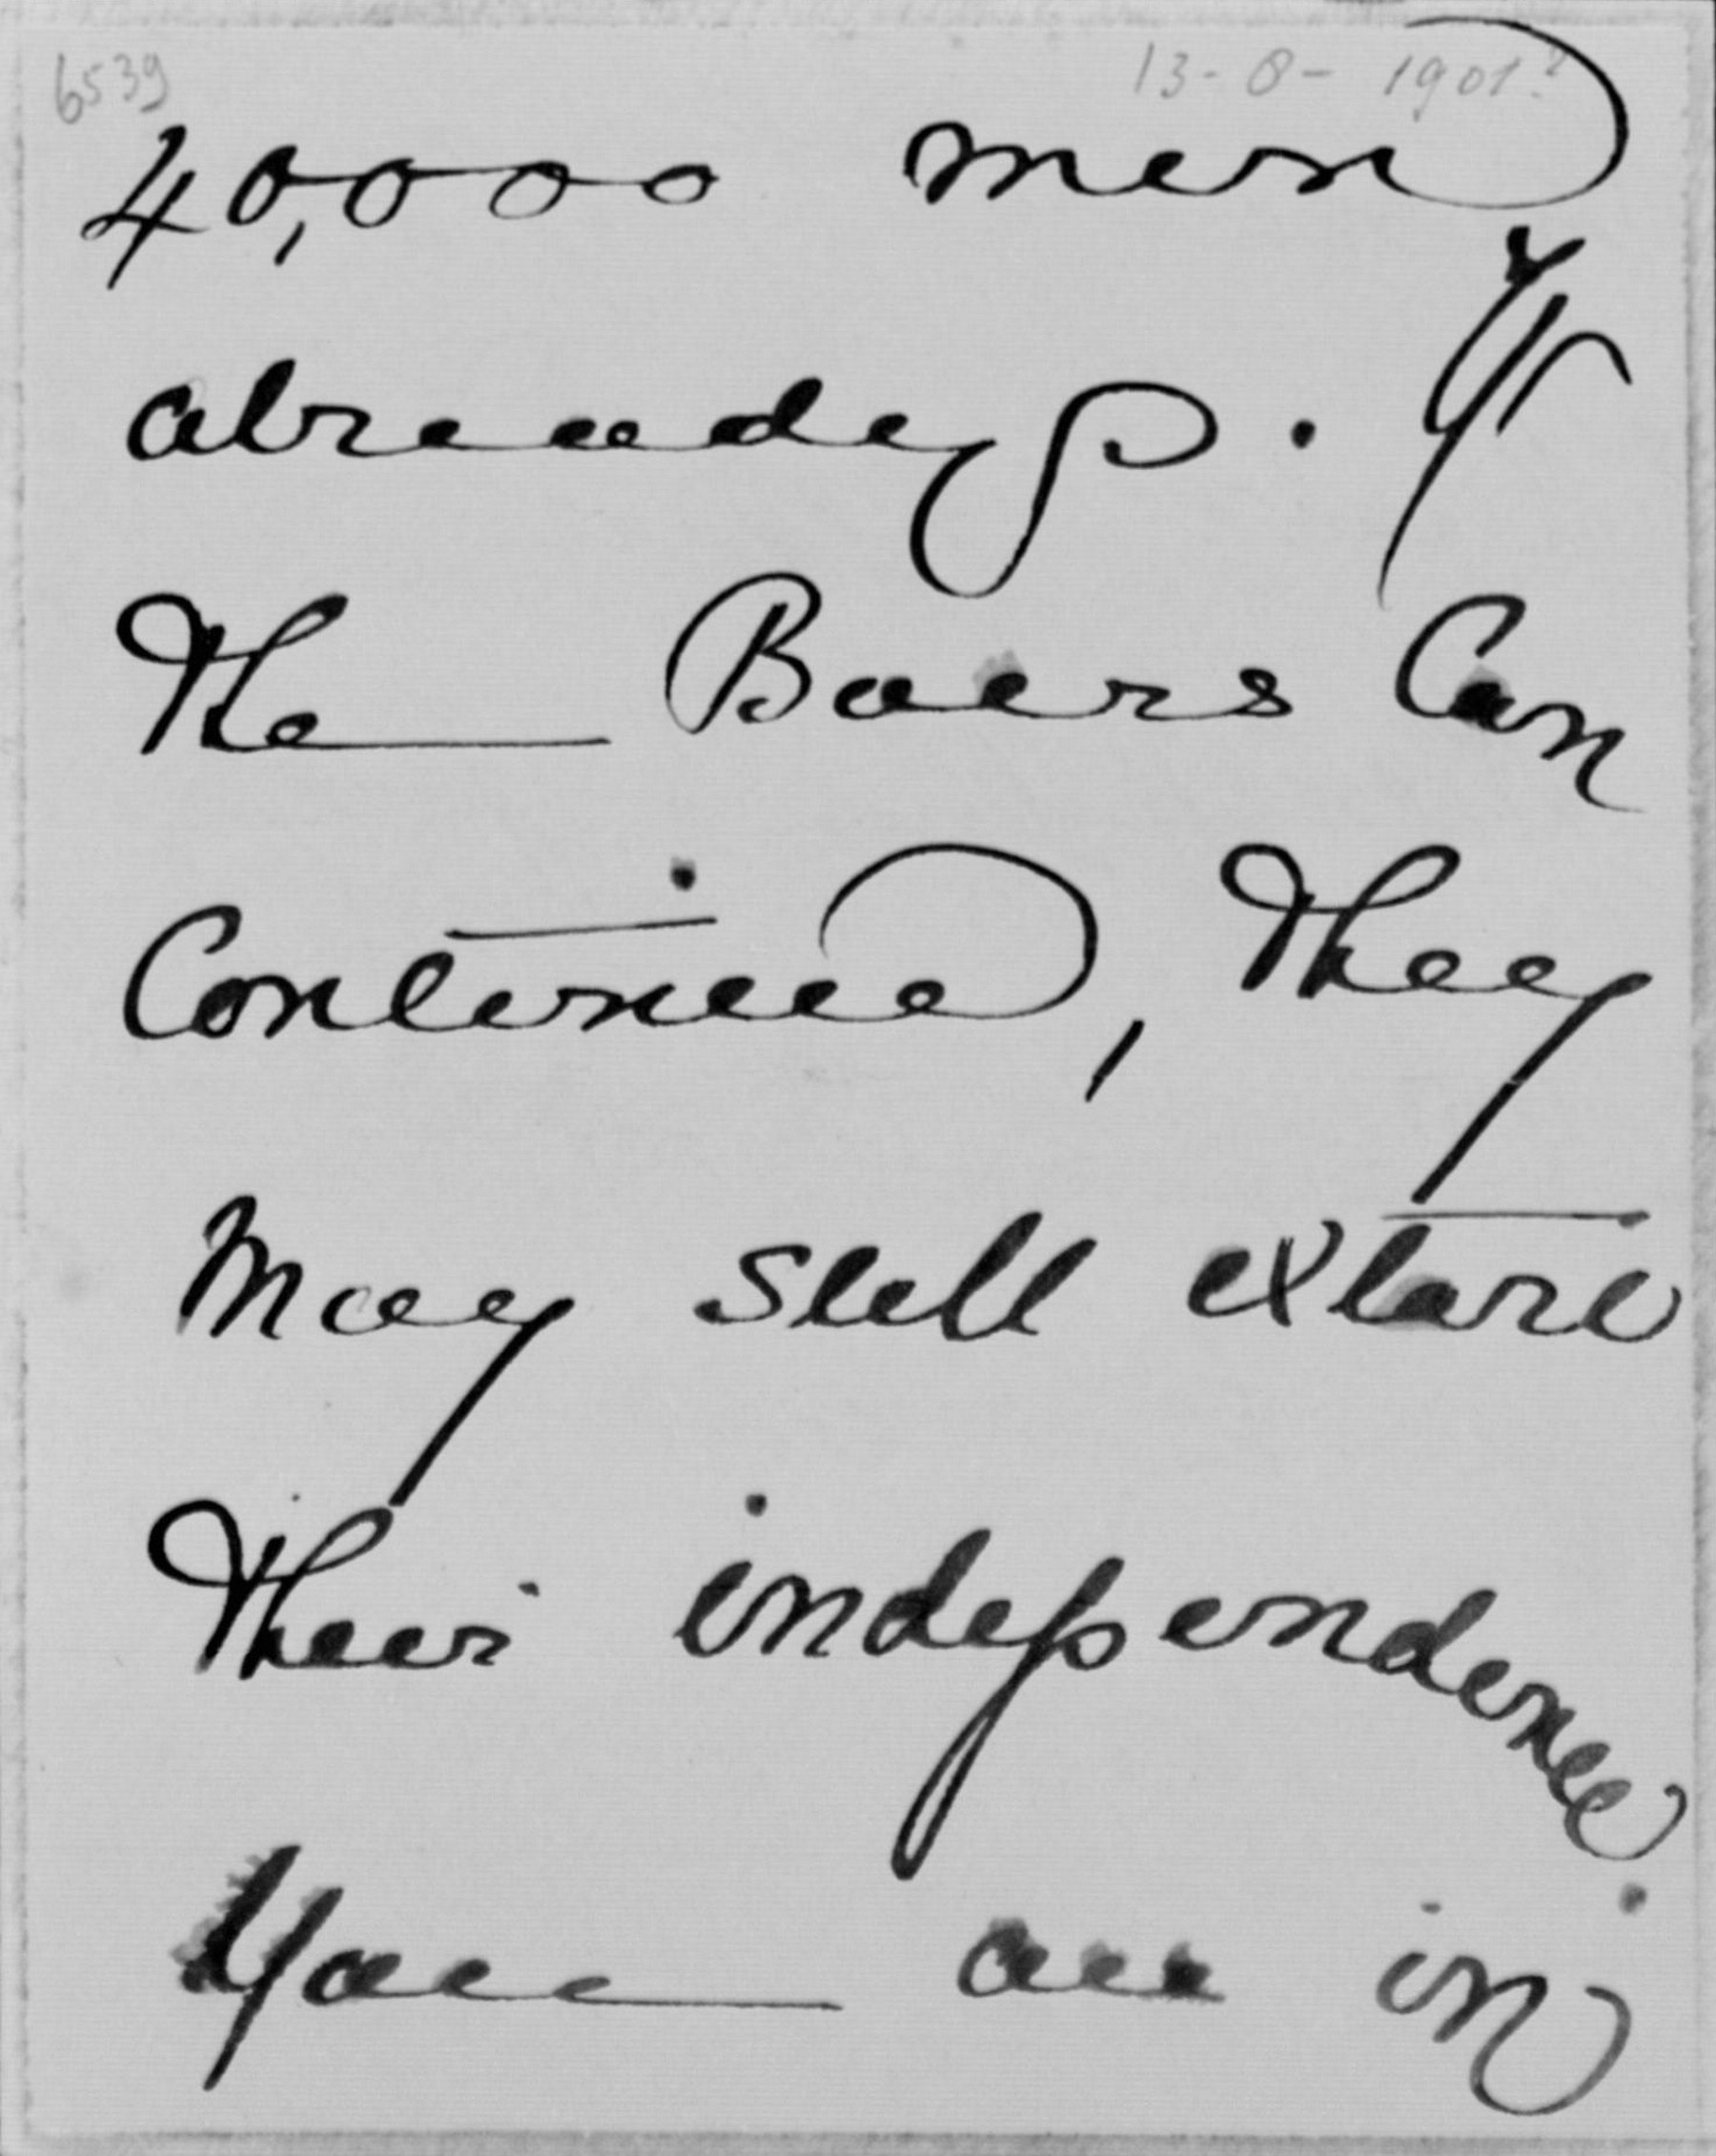 6539 13-8-1901?
40,000 men
already. If
the Boers Can
Continue, they
May still extort
their independence.
You are in